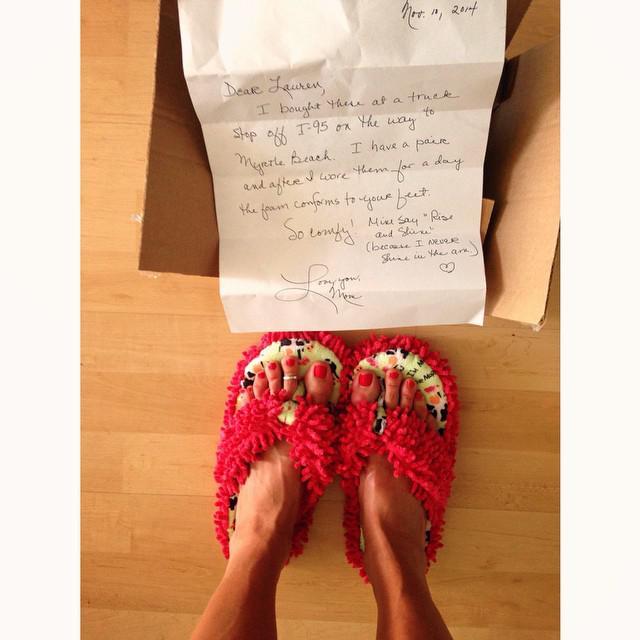 Nov. 10, 2014
Dear Lauren,
I bought these at a truck
stop off I-95 on the way to
Myrtle Beach. I have a pair
and after I wore them for a day
the foam conforms to your feet.
So comfy! Mine say "Rise
and Shine"
(because I NEVER
shine in the a.m.)
Love you,
Mom